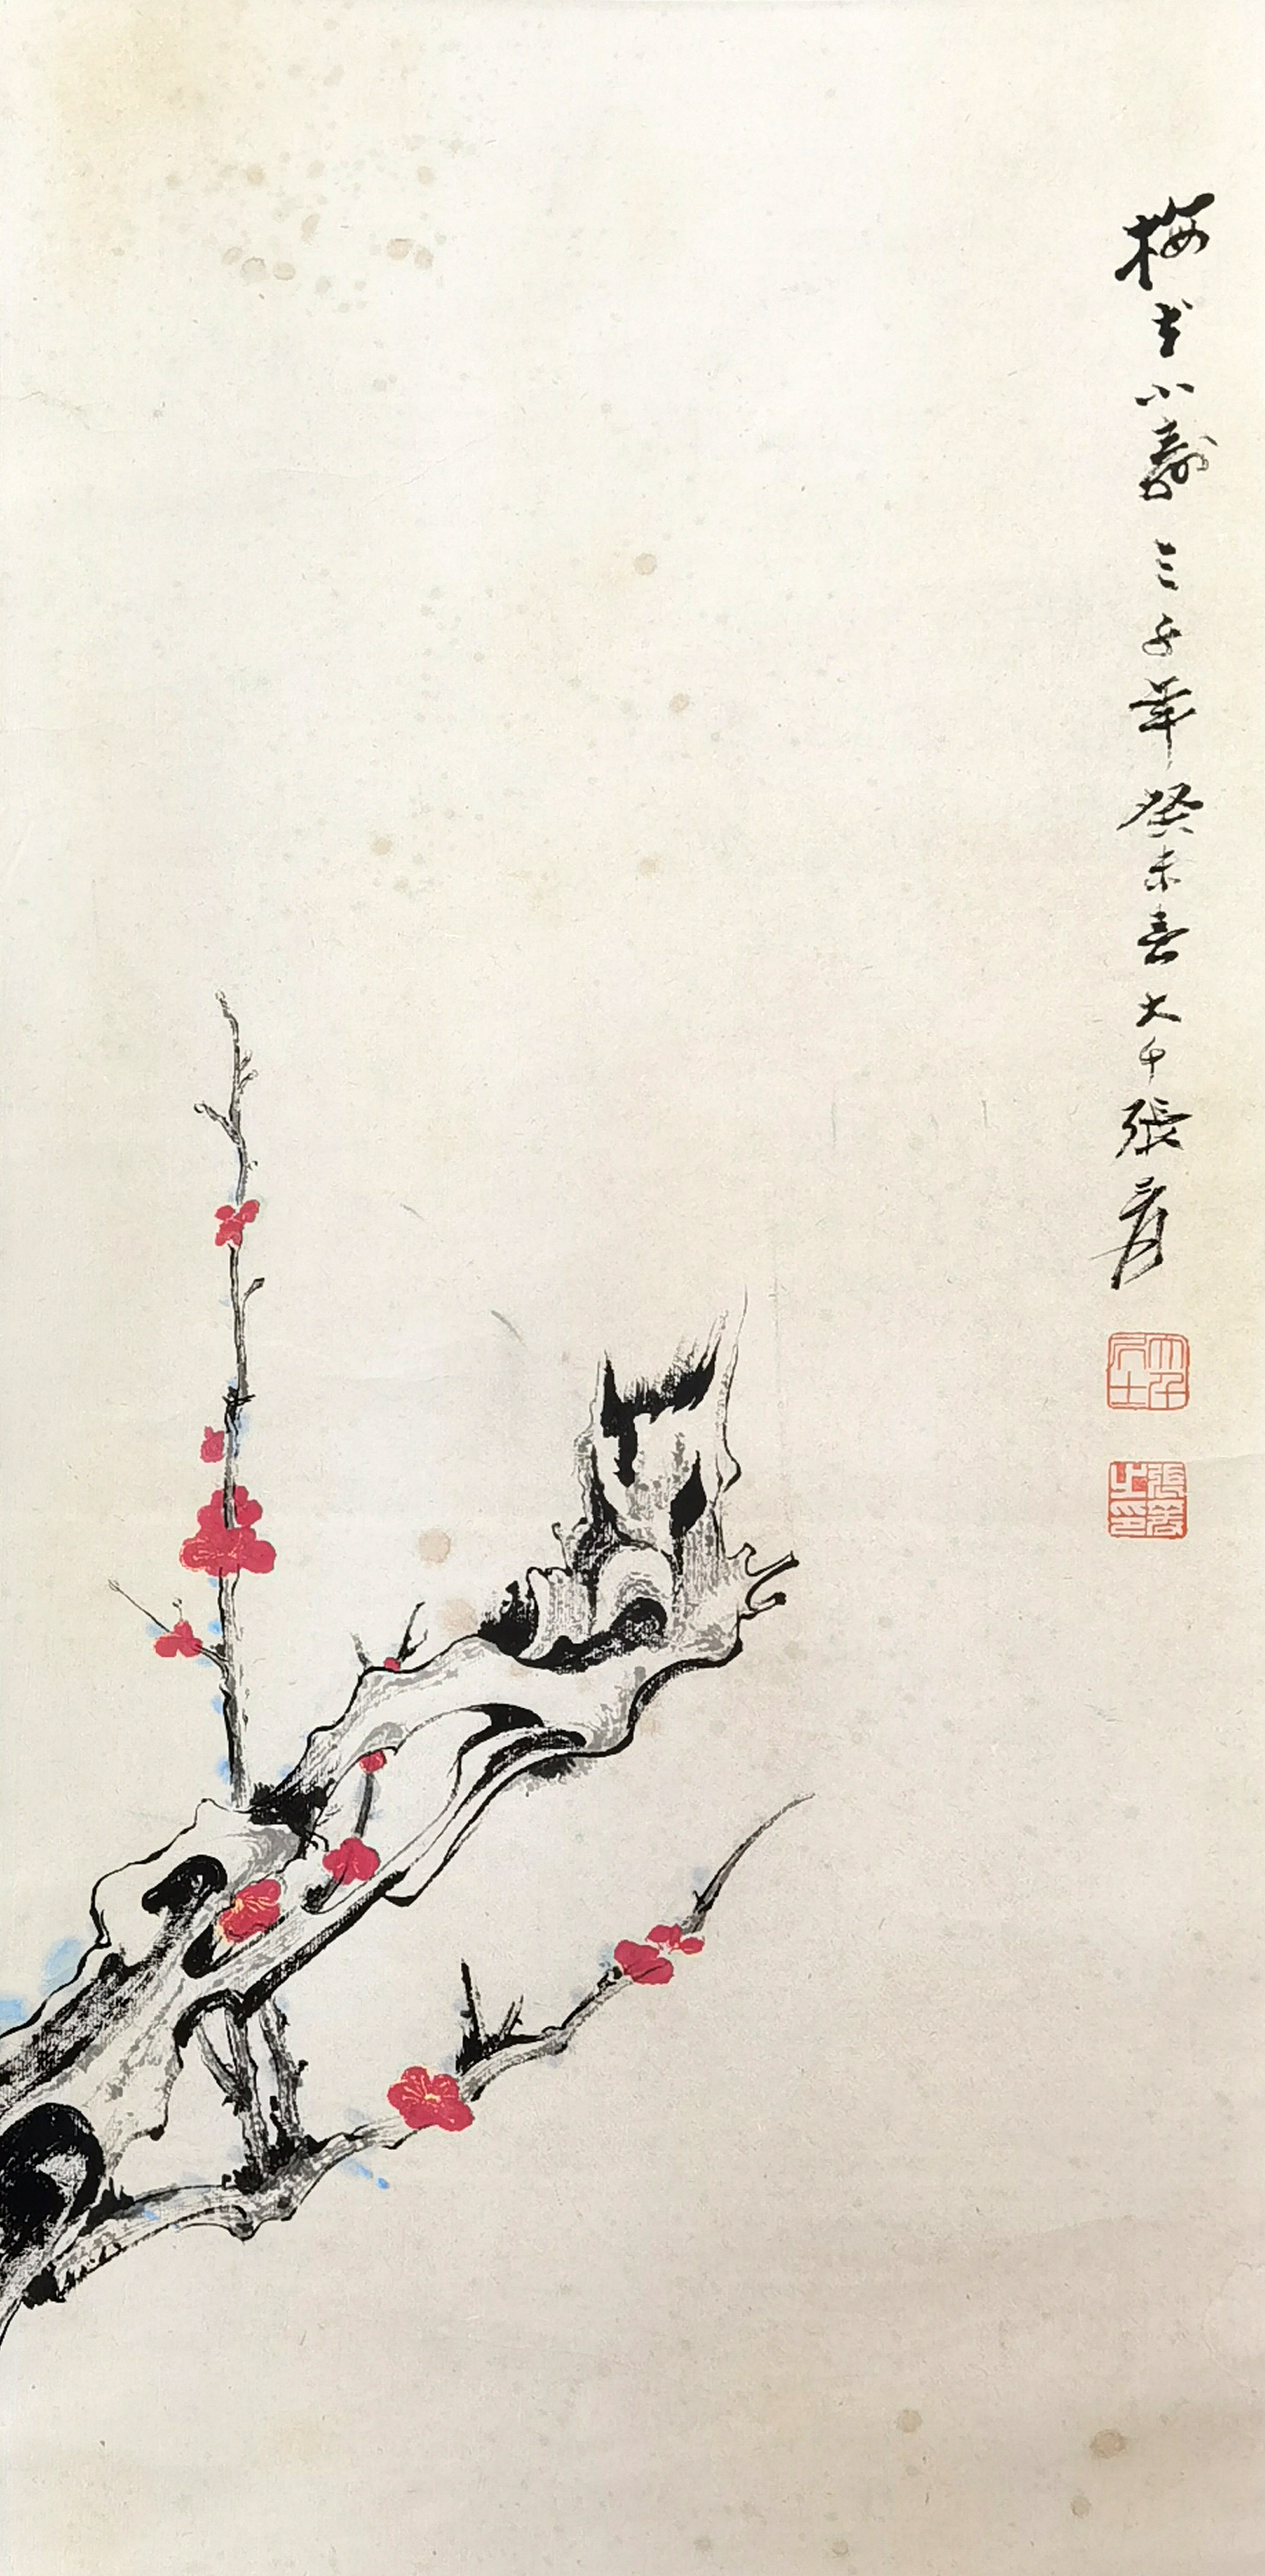 梅花小壽三千年癸未春大千張爰
大千居士
張爰之印